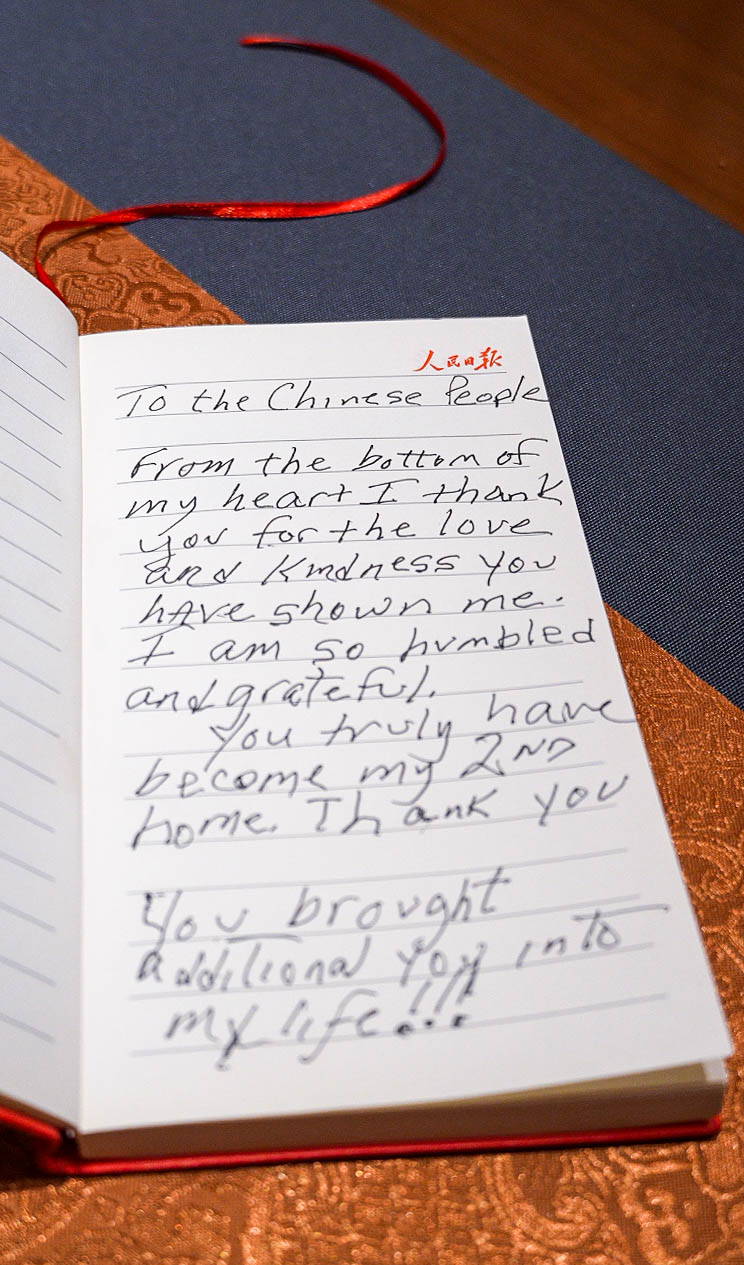 人民日报
To the Chinese People
From the bottom of
my heart I thank
you for the love
and Kindness you
have shown me.
I am so humbled
and grateful.
You truly have
become my 2ND
home. Thank you
You brought
additional yoy into
my life!!!